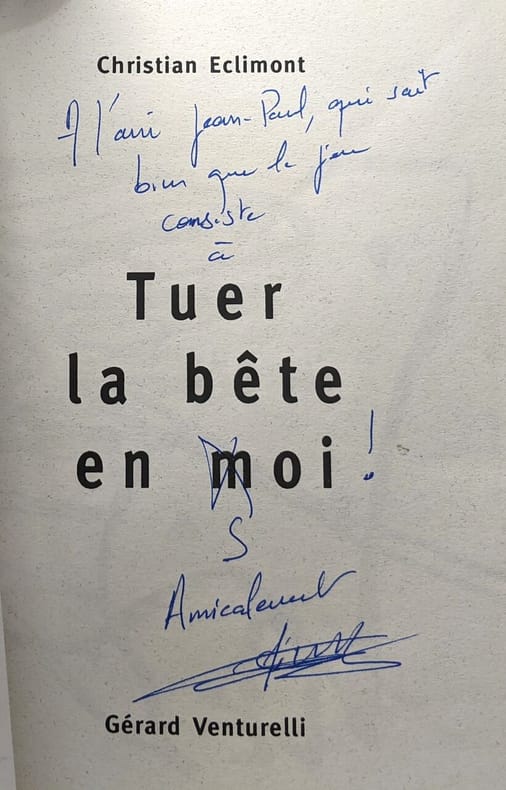 Christian Eclimont
A l'ami Jean-Paul, qui sait
bien que le jeu
consiste
à
Tuer
la bête
en moi !
S
Amicalement
Gérard Venturelli